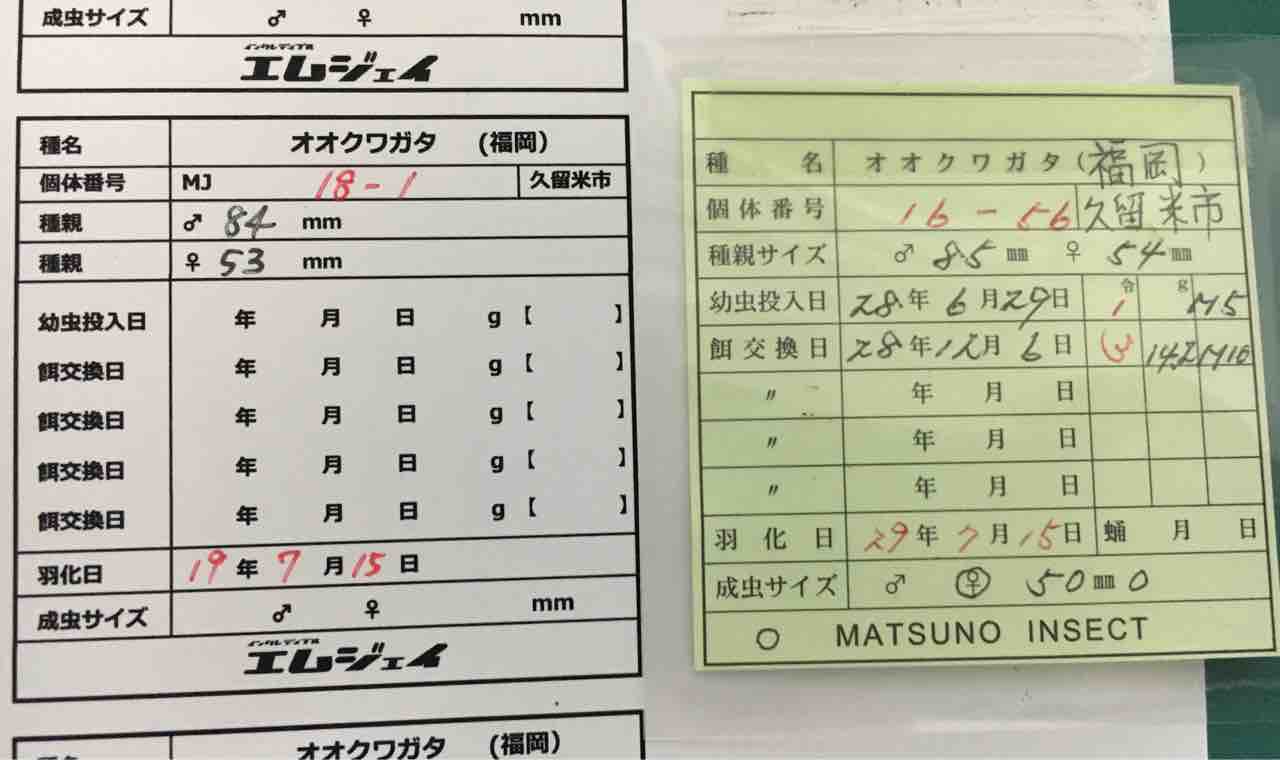 成虫サイズ ♂ ♀ mm
インクレディブル
エムジェイ
種名 オオクワガタ (福岡)
個体番号 MJ 18-1 久留米市
種親 ♂ 84 mm
種親 ♀ 53 mm
幼虫投入日 年 月 日 g【 】
餌交換日 年 月 日 g【 】
餌交換日 年 月 日 g【 】
餌交換日 年 月 日 g【 】
餌交換日 年 月 日 g【 】
羽化日 19年 7月 15日
成虫サイズ ♂ ♀ mm
インクレディブル
エムジェイ
オオクワガタ (福岡)
種名 オオクワガタ(福岡)
個体番号 16-56 久留米市
種親サイズ ♂ 85 mm ♀ 54 mm
幼虫投入日 28年 6月 29日 令 1 g M5
餌交換日 28年 12月 6日 3 14.2 M10
〃 年 月 日
〃 年 月 日
〃 年 月 日
羽化日 29年 7月 15日 蛹 月 日
成虫サイズ ♂ ♀ 50 mm 0
○ MATSUNO INSECT